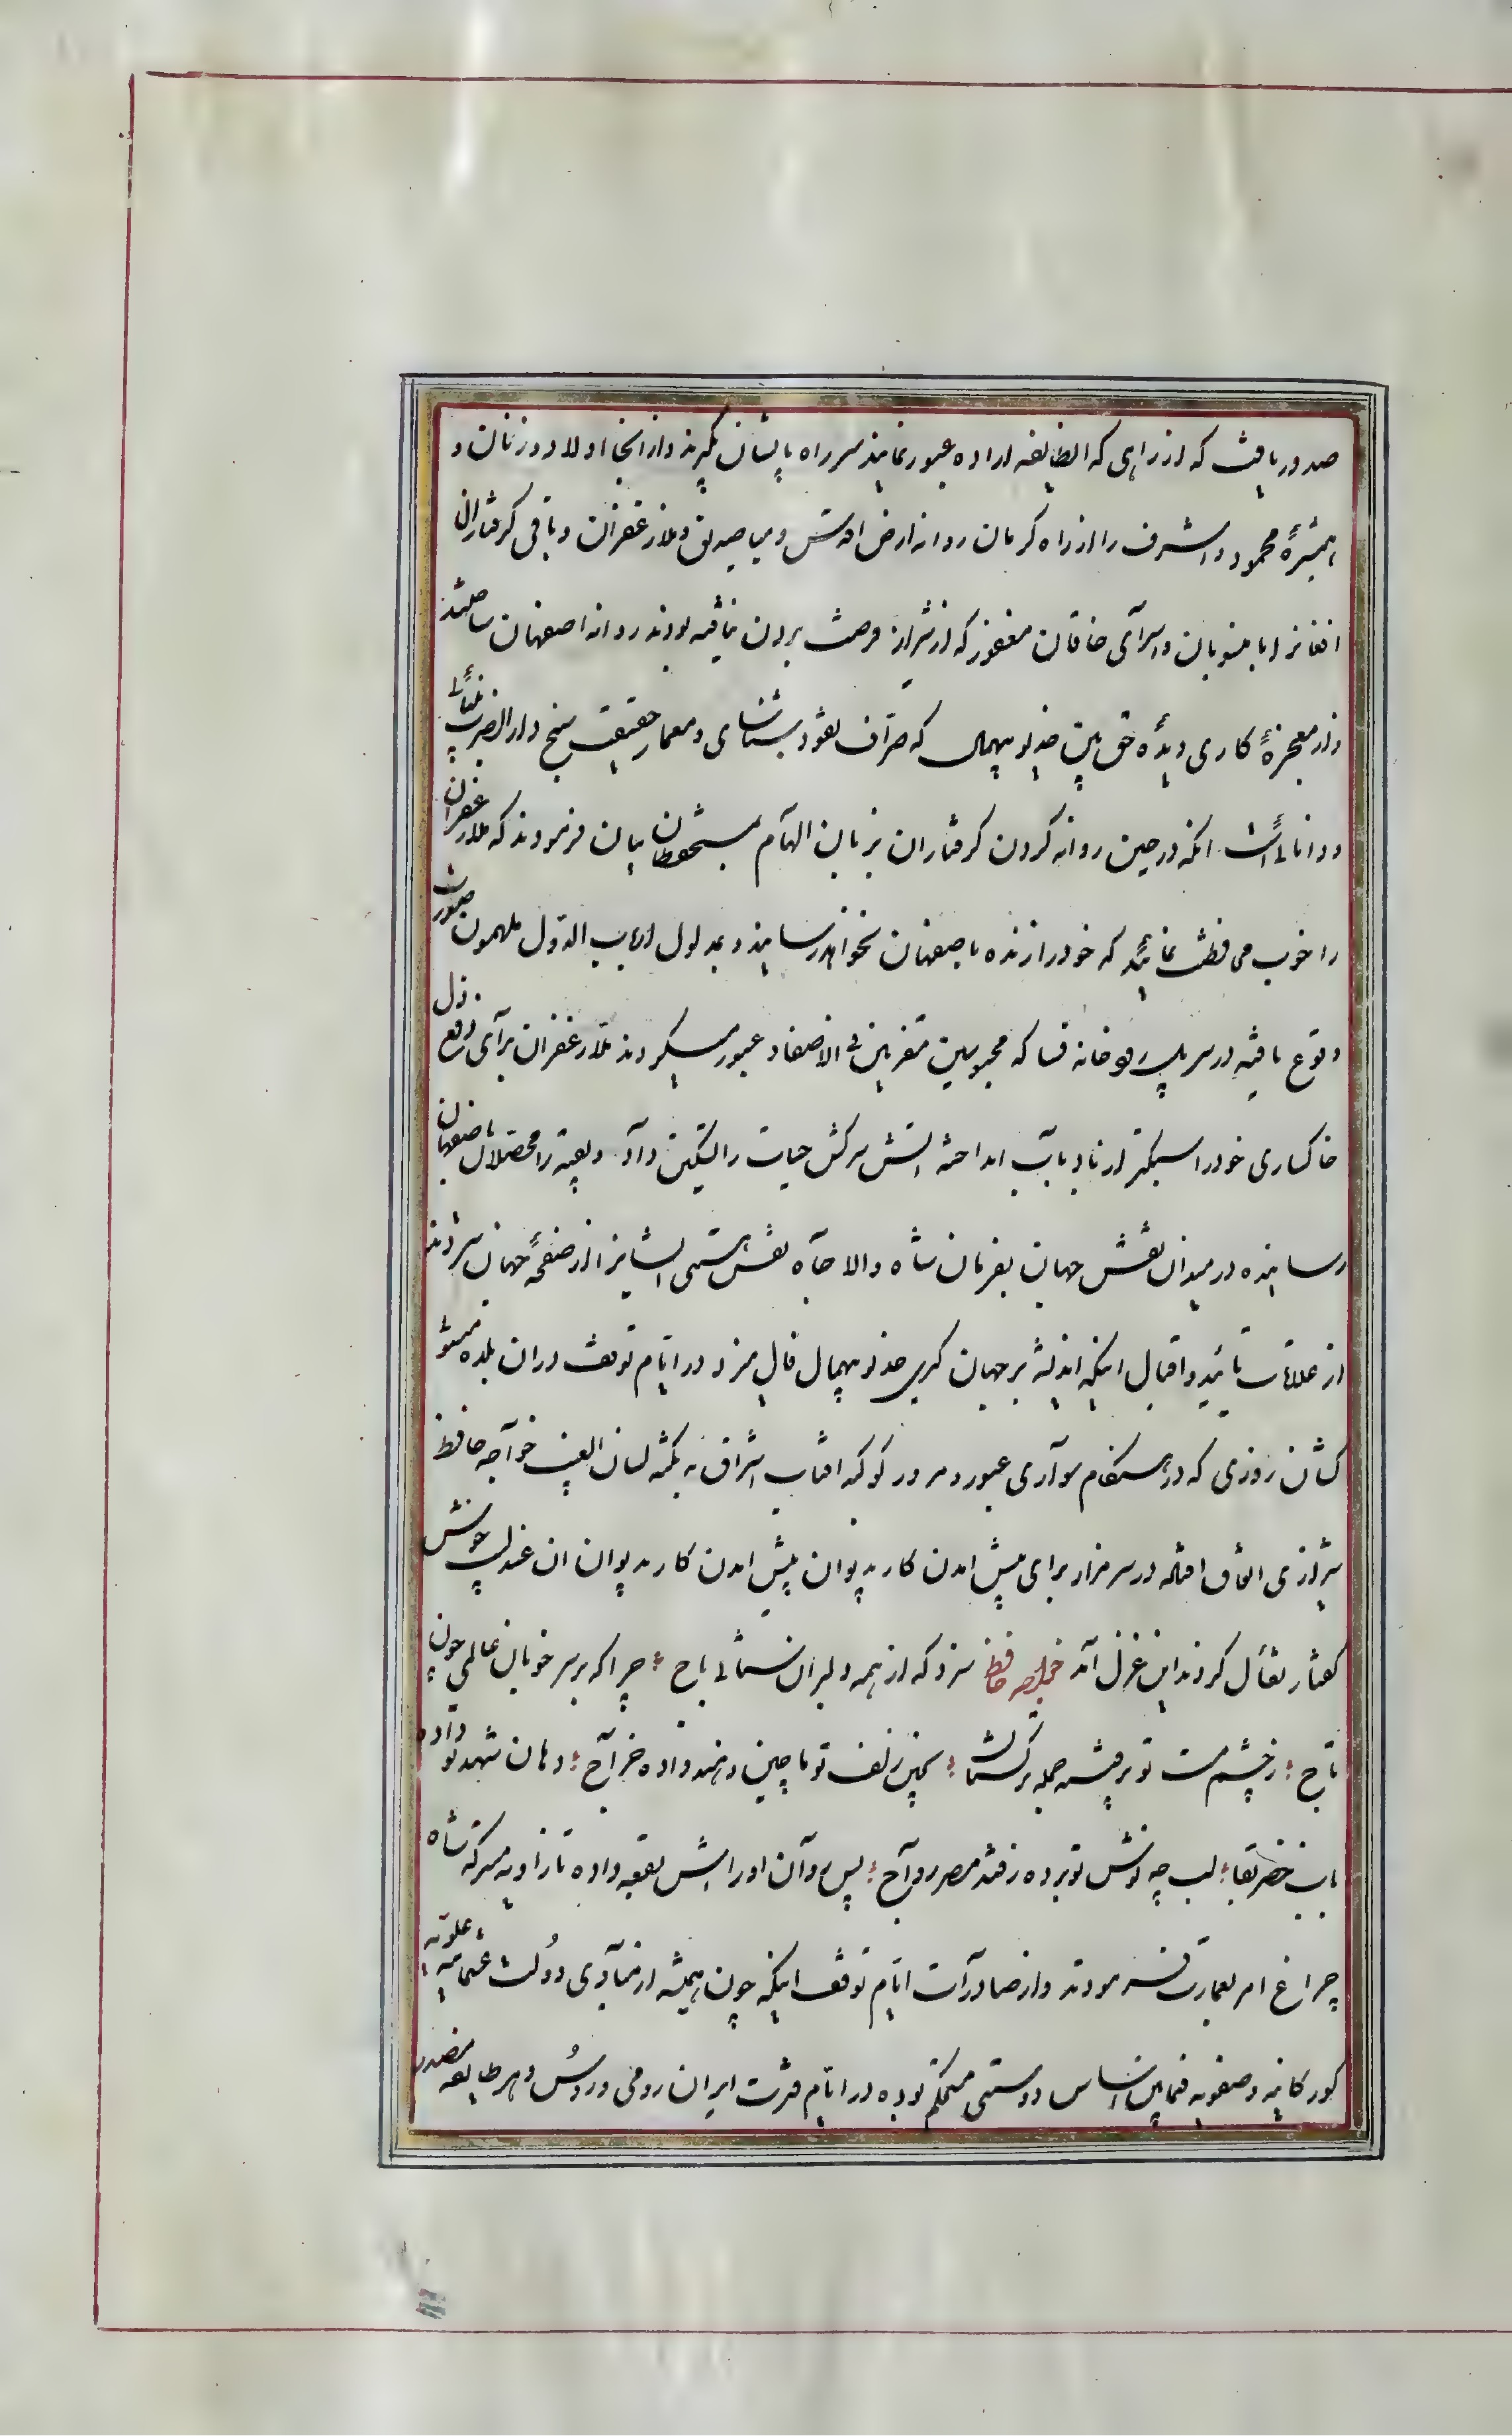 صدور یافت که از راهی که الطایفه اراده عبور نمایند سر راه بایشان بگیرند و از انجا اولاد و زنان و
همشیرهٔ محمود و اشرف را از راه کرمان روانه ارض اقدس و میاصدیق و ملازعفران و باقی گرفتاران
افغانرا با منسوبان و اسرای خاقان مغفور که از شیراز فرصت بردن نیافته بودند روانه اصفهان ساختند
و از معجزهٔ کاری دیدهٔ حق بین خدیو بیهمال که صراف نقود شناسائی و معمار حقیقت سنج دار الضرب بینائی
و دانائی است انکه در حین روانه کردن گرفتاران بزبان الهام بمستحفظان بیان فرمودند که ملازعفران
را خوب محافظت نمائید که خود را زنده باصفهان نخواهد رسانید و بمدلول ارباب الدول ملهمون صورت
وقوع یافته در سر پل فسا که محبوسین مقرنین فی الاصفاد عبور میکردند ملازعفران برای دفع ذل
خاکساری خود را سبکتر از باد بآب انداخته آتش سرکش حیات را تسکین داد و بقیه را محصلان باصفهان
رسانیده در میدان نقش جهان بفرمان شاه والا جاه نقش هستی ایشانرا از صفحهٔ جهان ستردند
از علامات تائید و اقبال اینکه اندیشه بر جهان گیری خدیو بیهمال فال میزد در ایام توقف در ان بلده مینو
نشان روزی که در هنگام سواری عبور و مرور کوکبه افتاب اشراق به تکیه لسان الغیب خواجه حافظ
شیرازی اتفاق افتاد در سر مزار برای پیش امدن کار بدیوان پیش امدن کار بدیوان ان عندلیب خوش
گفتار تفأل کردند این غزل آمد خواجه حافظ سزد که از همه دلبران ستانی باج ؛ چرا که بر سر خوبان عالمی چون
تاج ؛ ز چشم مست تو پر فتنه جمله ترکستان ؛ بچین زلف تو ماچین و هند داده خراج ؛ دهان شهد تو داده
بآب خضر بقا ؛ لب چو نوش تو برده ز قند مصر رواج ؛ پس روان او را بقعه داده تا زاویه متبرکه شاه
چراغ امر بعمارت فرمودند و از صادرات ایام توقف اینکه چون همیشه از مبادی دولت عثمانیه علویه
گورکانیه و صفویه فیمابین اساس دوستی مستحکم بوده در ایام فترت ایران رومی و روس و هر طایفه مصدر